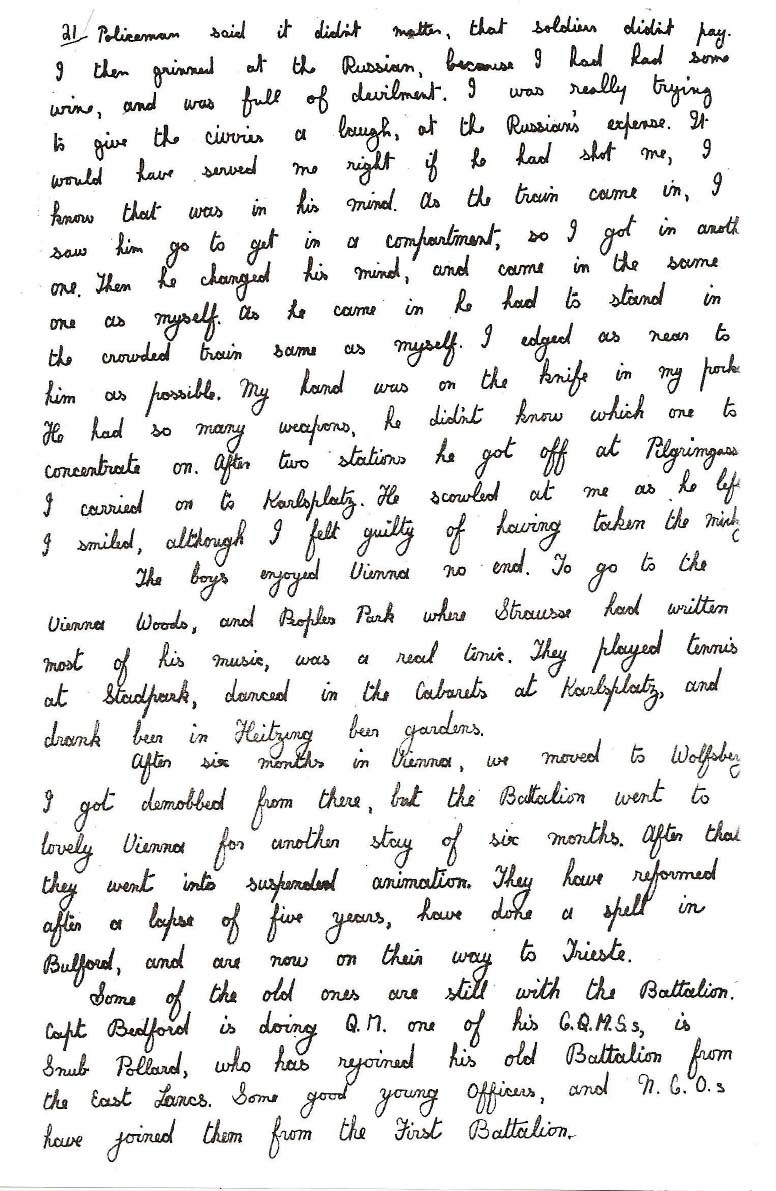 21 Policeman said it did'nt matter, that soldiers did'nt pay.
I then grinned at the Russian, because I had had some
wine, and was full of devilment. I was really trying
to give the civvies a laugh, at the Russian's expense. It
would have served me right if he had shot me, I
know that was in his mind. As the train came in, I
saw him go to get in a compartment, so I got in anoth
one. Then he changed his mind, and came in the same
one as myself. As he came in he had to stand in
the crowded train same as myself. I edged as near to
him as possible. My hand was on the knife in my pock
He had so many weapons, he did'nt know which one to
concentrate on. After two stations he got off at Pilgrimgass
I carried on to Karlsplatz. He scowled at me as he lef
I smiled, although I felt guilty of having taken the micky
The boys enjoyed Vienna no end. To go to the
Vienna Woods, and Peoples Park where Strausse had written
most of his music, was a real tonic. They played tennis
at Stadpark, danced in the Cabarets at Karlsplatz, and
drank beer in Heitzing beer gardens.
After six months in Vienna, we moved to Wolfsberg
I got demobbed from there, but the Battalion went to
lovely Vienna for another stay of six months. After that
they went into suspended animation. They have reformed
after a lapse of five years, have done a spell in
Bulford, and are now on their way to Trieste.
Some of the old ones are still with the Battalion.
Capt Bedford is doing Q.M. one of his C.Q.M.S.s, is
Snub Pollard, who has rejoined his old Battalion from
the East Lancs. Some good young Officers, and N.C.O.s
have joined them from the First Battalion.